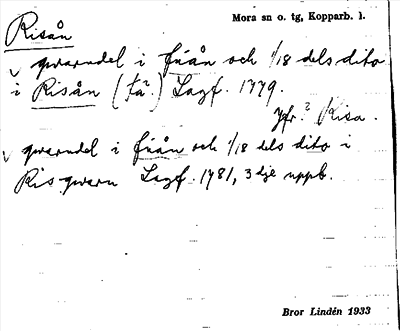 Risån
Mora sn o. tg, Kopparb. l.
v qwarndel i fuån och 1/18 dels dito
i Risån ( ) Lagf. 1779.
Jfr.? Risa.
v qwarndel i fuån och 1/18 dels dito i
Risqwarn Lagf. 1781, 3dje uppb.
Bror Lindén 1933